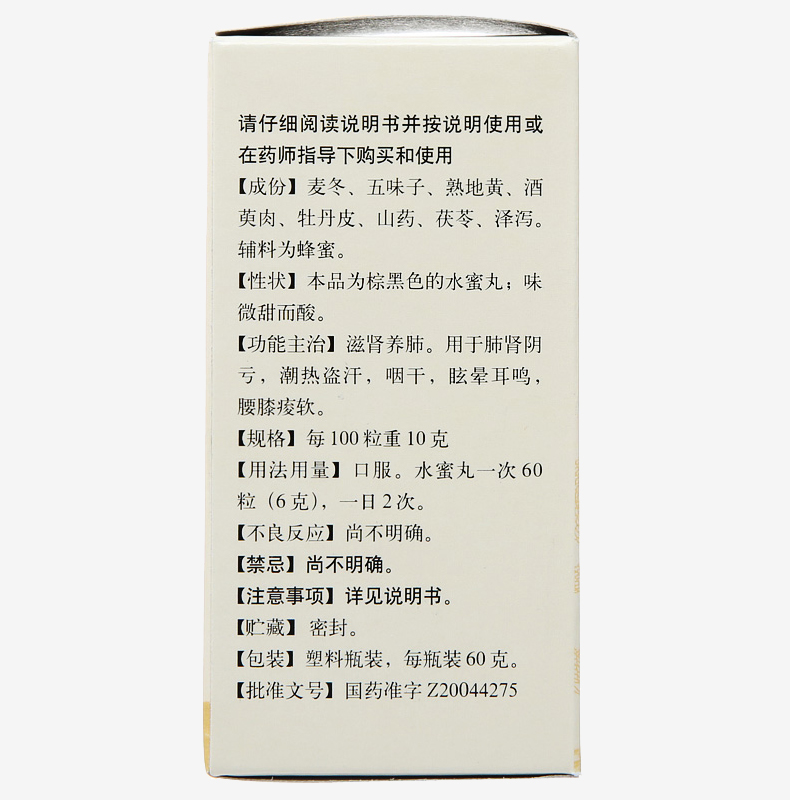 请仔细阅读说明书并按说明使用或
在药师指导下购买和使用
【成份】麦冬、五味子、熟地黄、酒
萸肉、牡丹皮、山药、茯苓、泽泻。
辅料为蜂蜜。
【性状】本品为棕黑色的水蜜丸；味
微甜而酸。
【功能主治】滋肾养肺。用于肺肾阴
亏，潮热盗汗，咽干，眩晕耳鸣，
腰膝痠软。
【规格】每100粒重10克
【用法用量】口服。水蜜丸一次60
粒（6克），一日2次。
【不良反应】尚不明确。
【禁忌】尚不明确。
【注意事项】详见说明书。
【贮藏】密封。
【包装】塑料瓶装，每瓶装60克。
【批准文号】国药准字Z20044275